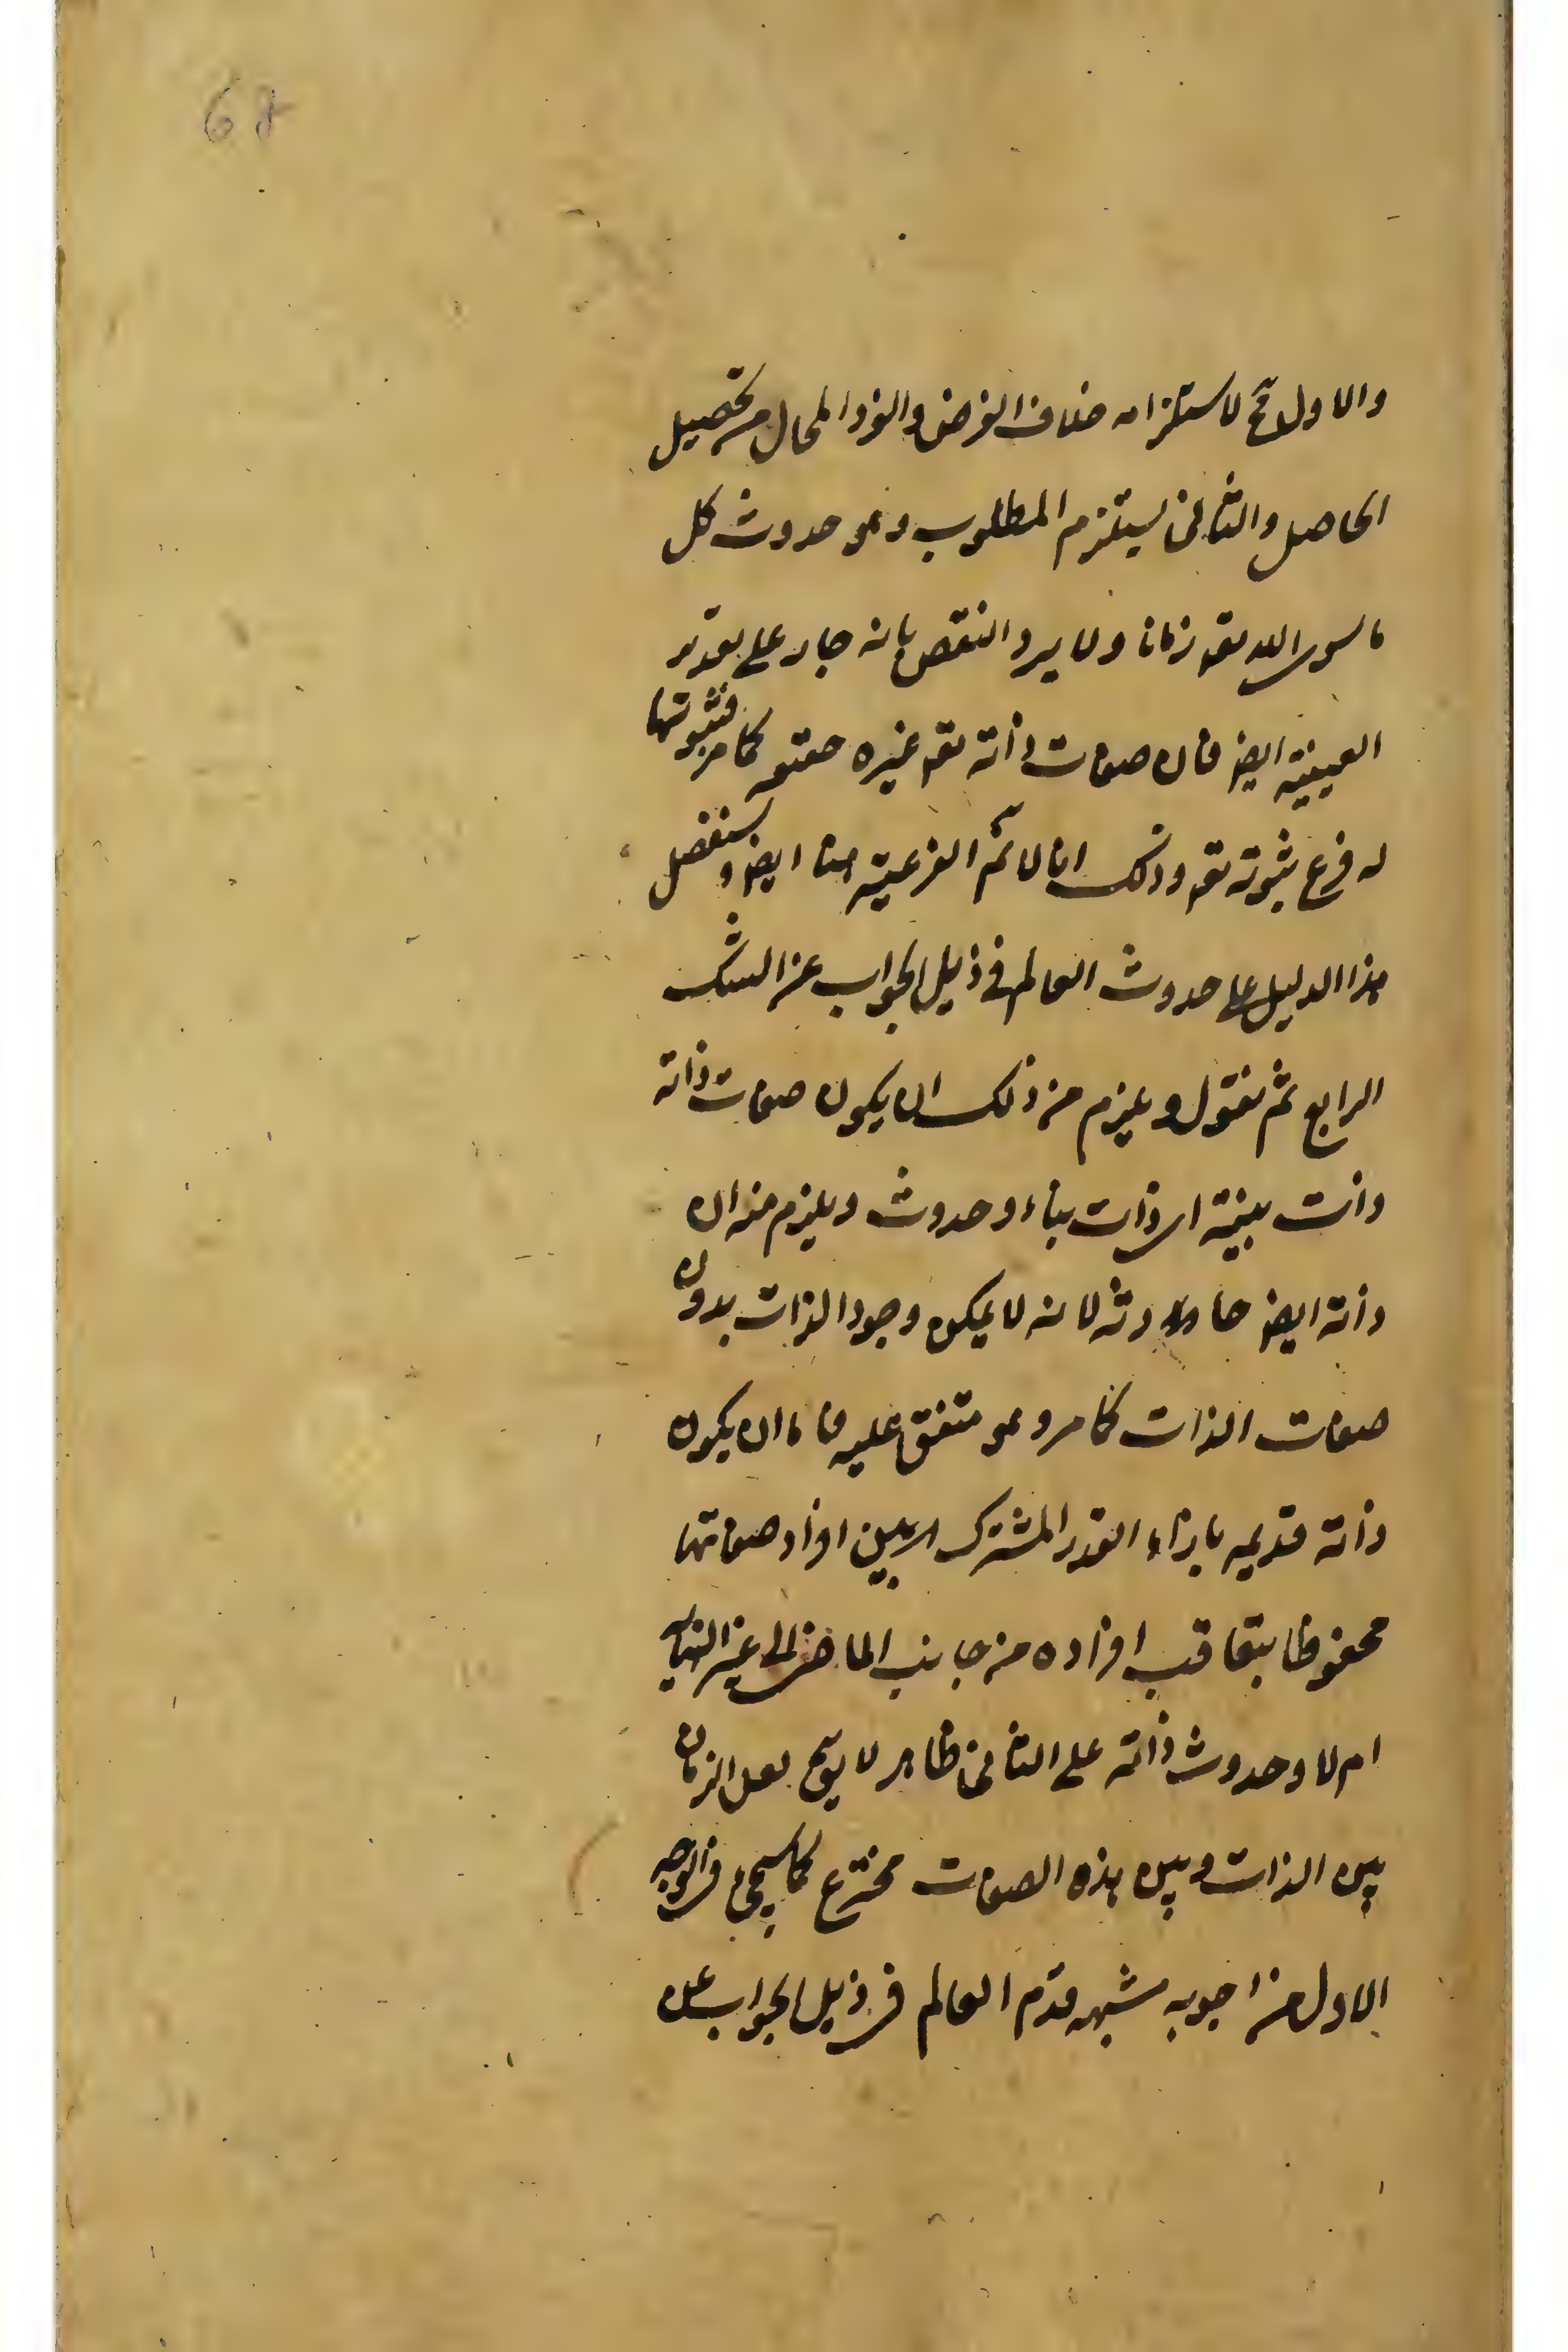 68
والاول مح لاستلزامه خلاف الفرض والفرد المحال من تحصيل
الحاصل والثاني يستلزم المطلوب وهو حدوث كل
ما سوى الله تعه زمانا ولا يرد النقض بانه جار على تقدير
العينية ايضه فان صفات ذاته تعه غيره كما مر فثبوتها
له فرع ثبوته تعه وذلك انا لا نم الفرعية هنا ايضه وسنفصل
هذا الدليل على حدوث العالم في ذيل الجواب عن الشك
الرابع ثم نقول ويلزم من ذلك ان يكون صفات ذاته
ذات بينة اى ذات بناء وحدوث ويلزم منه ان
ذاته ايضه حادثه لانه لا يمكن وجود الذات بدون
صفات الذات كما مر وهو متفق عليه فاما ان يكون
ذاته قديمه بازاء القدر المشترك بين افراد صفاتها
محفوظا بتعاقب افراده من جانب الماضى الى غير النهايه
ام لا وحدوث ذاته على الثاني ظاهر لا يق لعل الزمان
بين الذات وبين هذه الصفات مخترع كما سيجئ في الوجه
الاول من اجوبه شبهه قدم العالم في ذيل الجواب عن